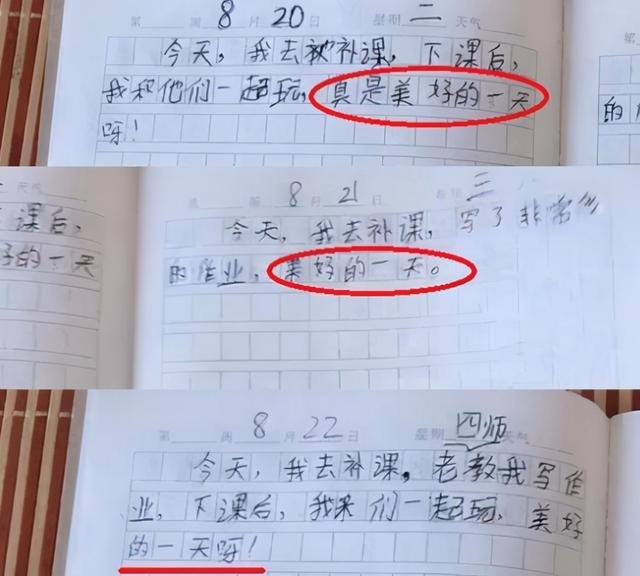 第 周 8 月 20 日 星期 二 天气
今天，我去被补课，下课后，
我和他们一起玩，真是美好的一天
呀！
第
的
天气
课后，
好的一天
8 月 21 日 三
今天，我去补课，写了非常多
的作业，美好的一天。
第 周 8 月 22 日 星期 四 师 天气
今天，我去补课，老教我写作
业，下课后，我来们一起玩，美好
的一天呀！